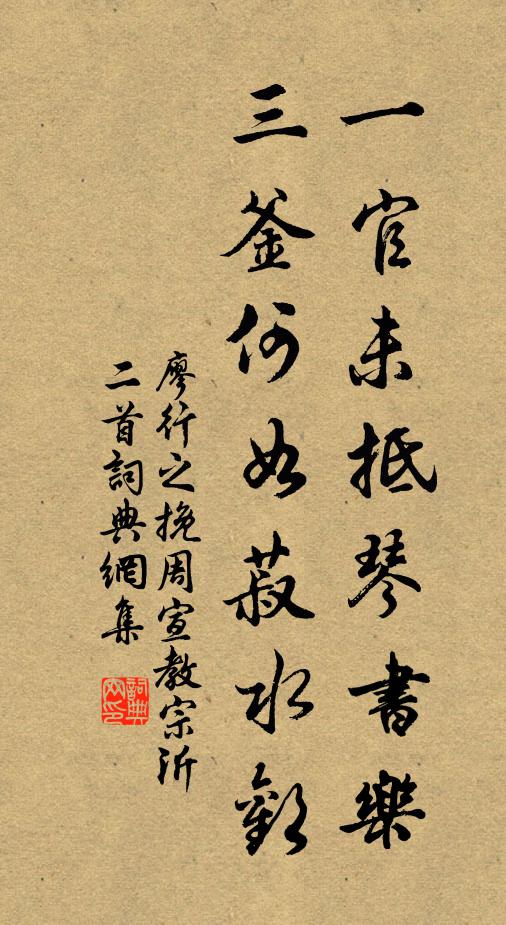 一官未抵琴書樂
三釜何如菽水歡
廖行之挽周宣教宗沂
二首詞典網集
詞典網印